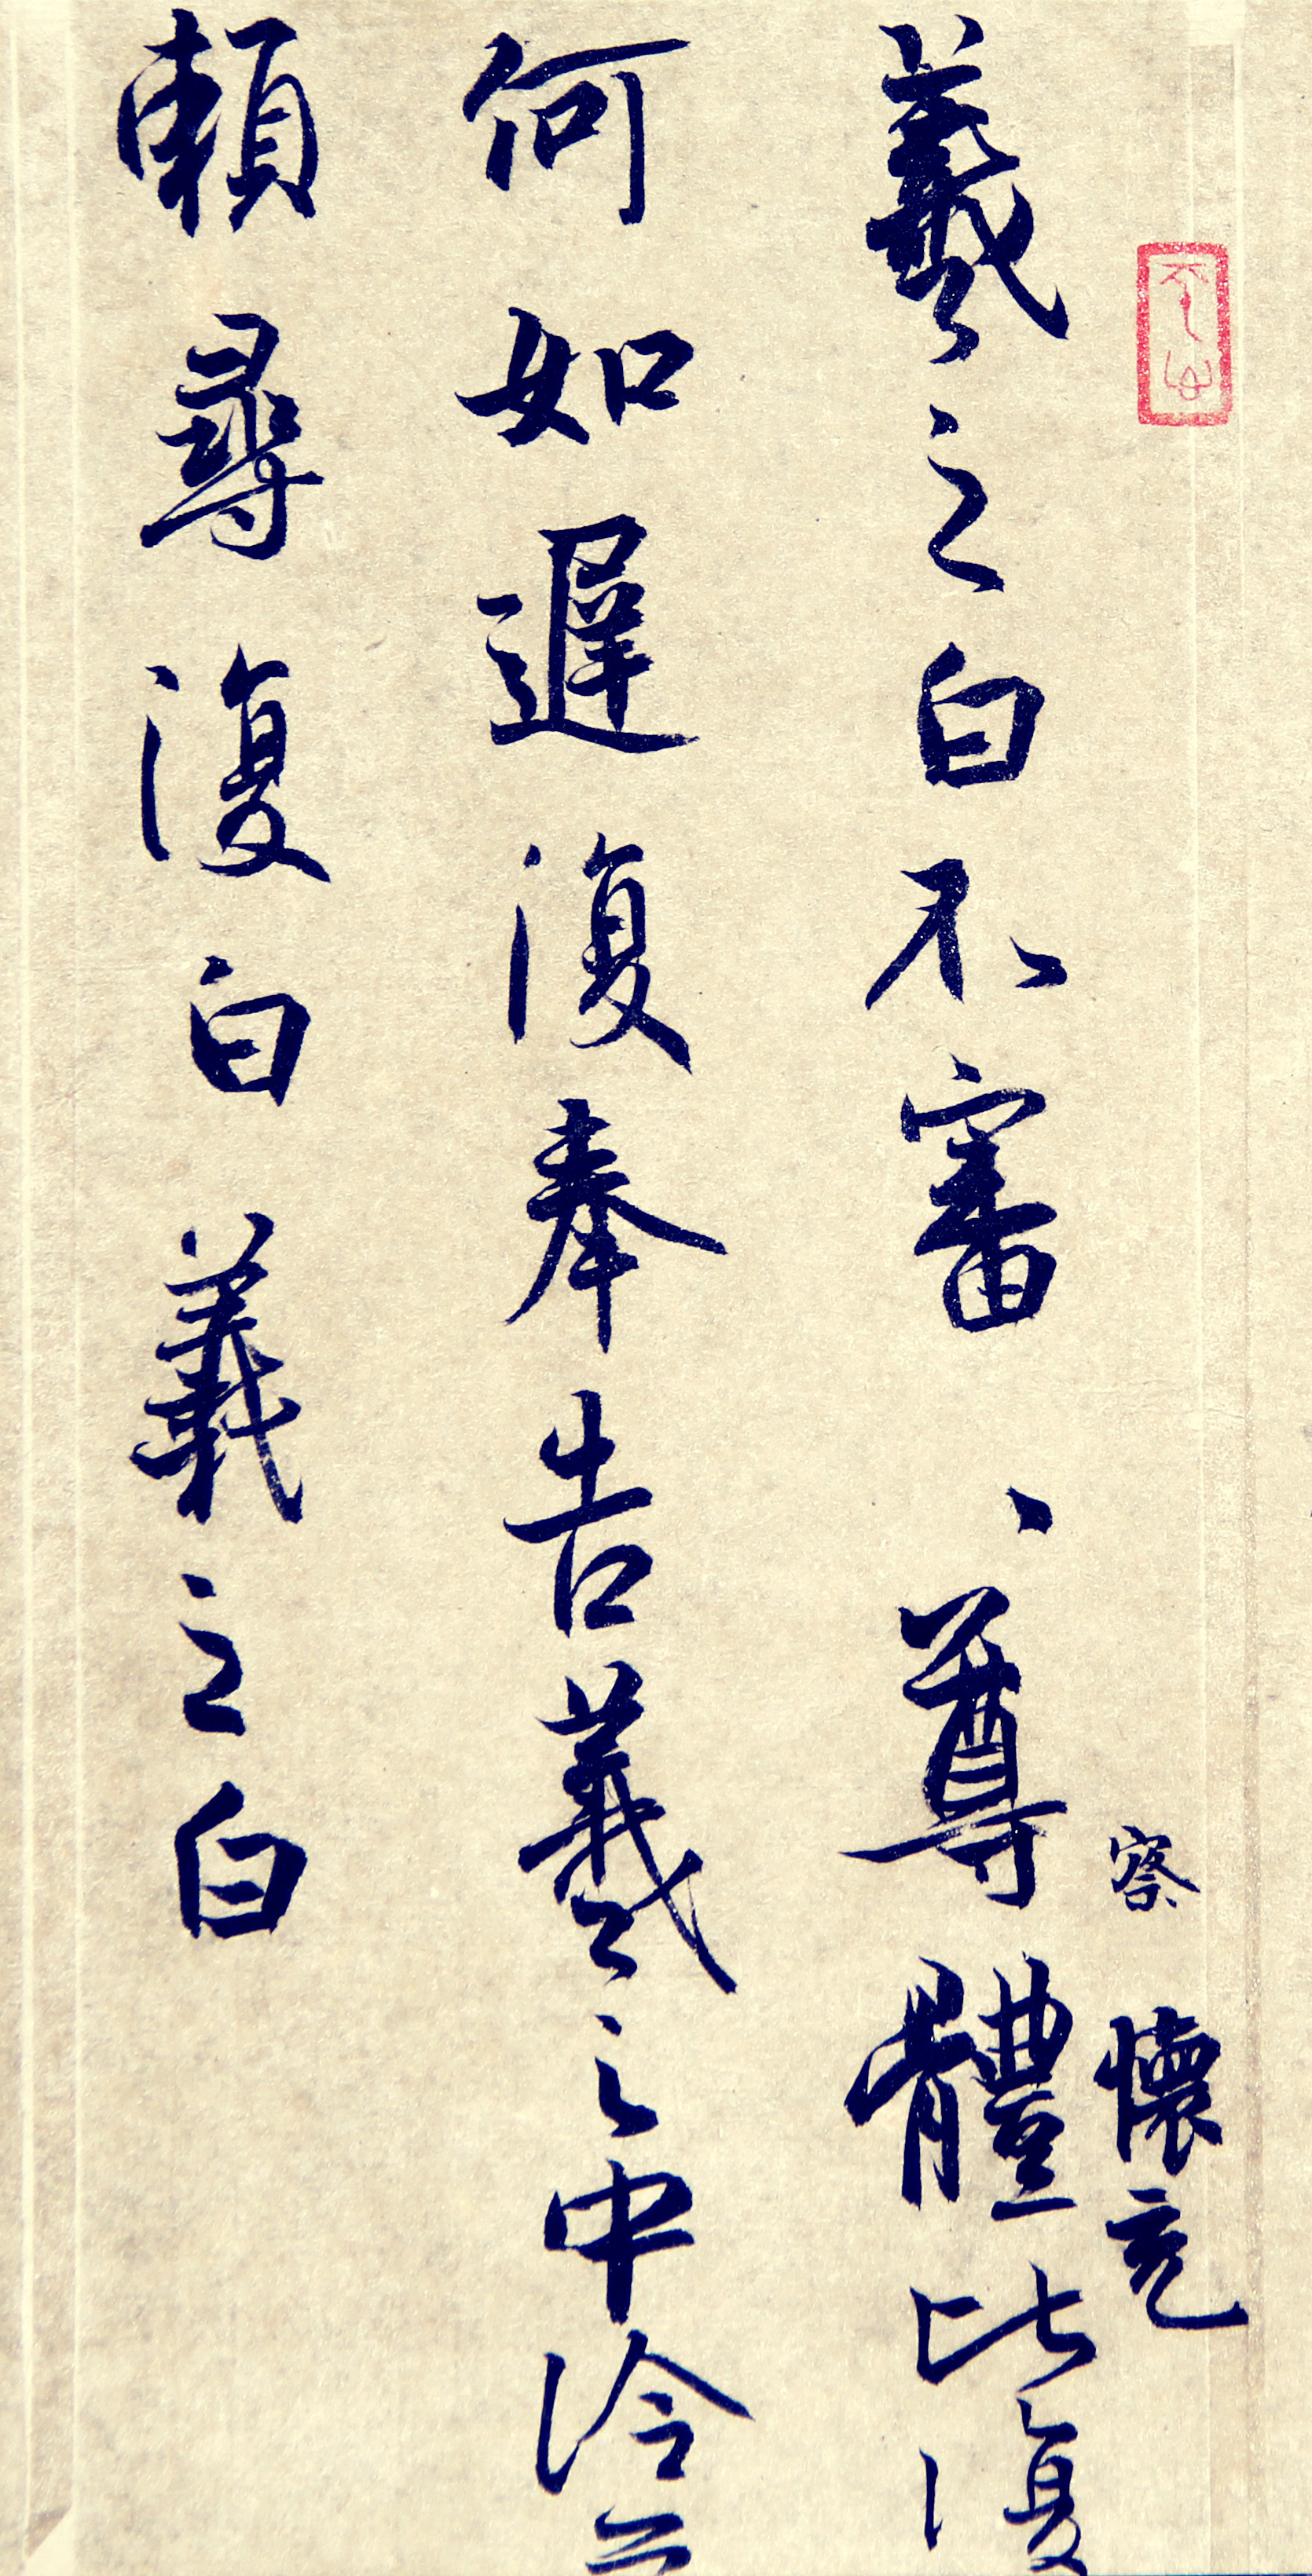 察 懷充
羲之白不審、尊體比復
何如遲復奉告羲之中冷
賴尋復白羲之白